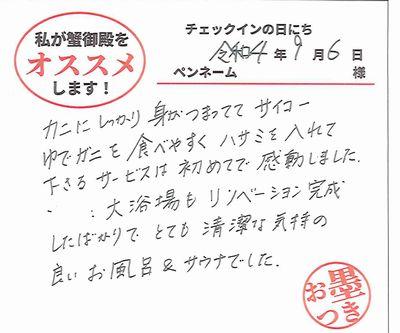 私が蟹御殿を
オススメ
します！
チェックインの日にち
令和4年9月6日
ペンネーム 様
カニにしっかり身がつまってて サイコー
ゆでガニを食べやすくハサミを入れて
下さるサービスは初めてで感動しました.
: 大浴場もリンベーション完成
したばかりでとても清潔な気持の
良いお風呂&サウナでした.
墨
おつき